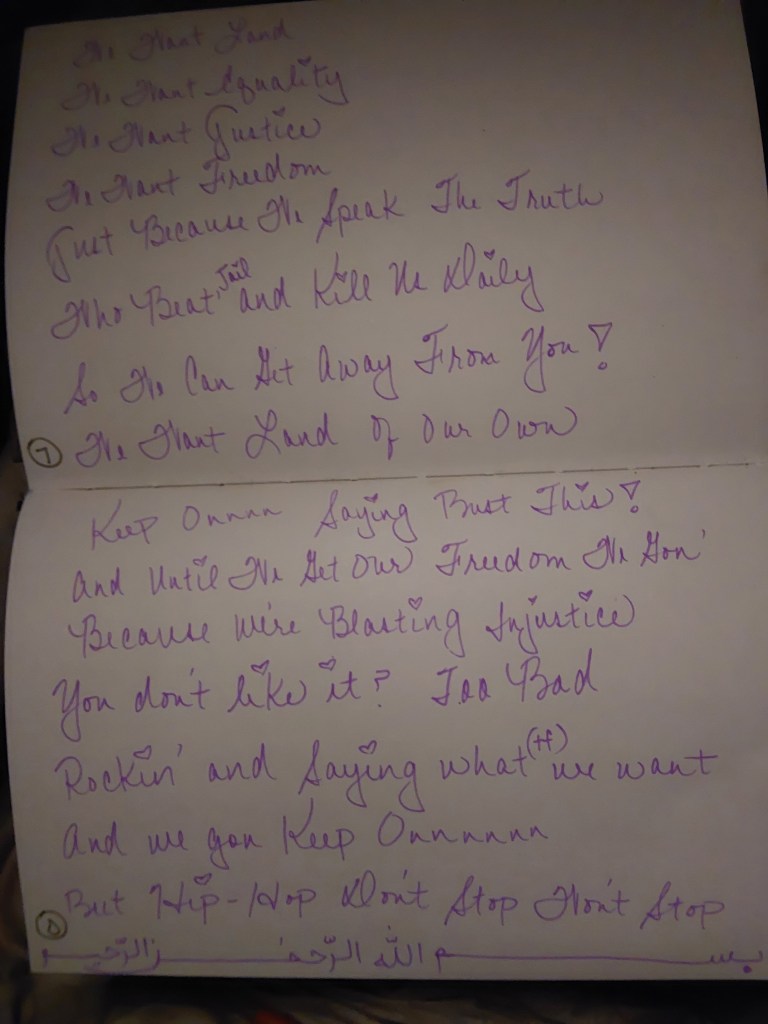 We Want Land
We Want Equality
We Want Justice
We Want Freedom
Just Because We Speak The Truth
Who Beat, Jail and Kill Us Daily
So We Can Get Away From You!
7 We Want Land Of Our Own
Keep Onnnn Saying Bust This!
And Until We Get Our Freedom We Gon'
Because We're Blasting Injustice
You don't like it? Too Bad
Rockin' and Saying what (tf) we want
And we gon Keep Onnnnnn
8 But Hip-Hop Don't Stop Won't Stop
بسم الله الرّحمٰن الرّحيم